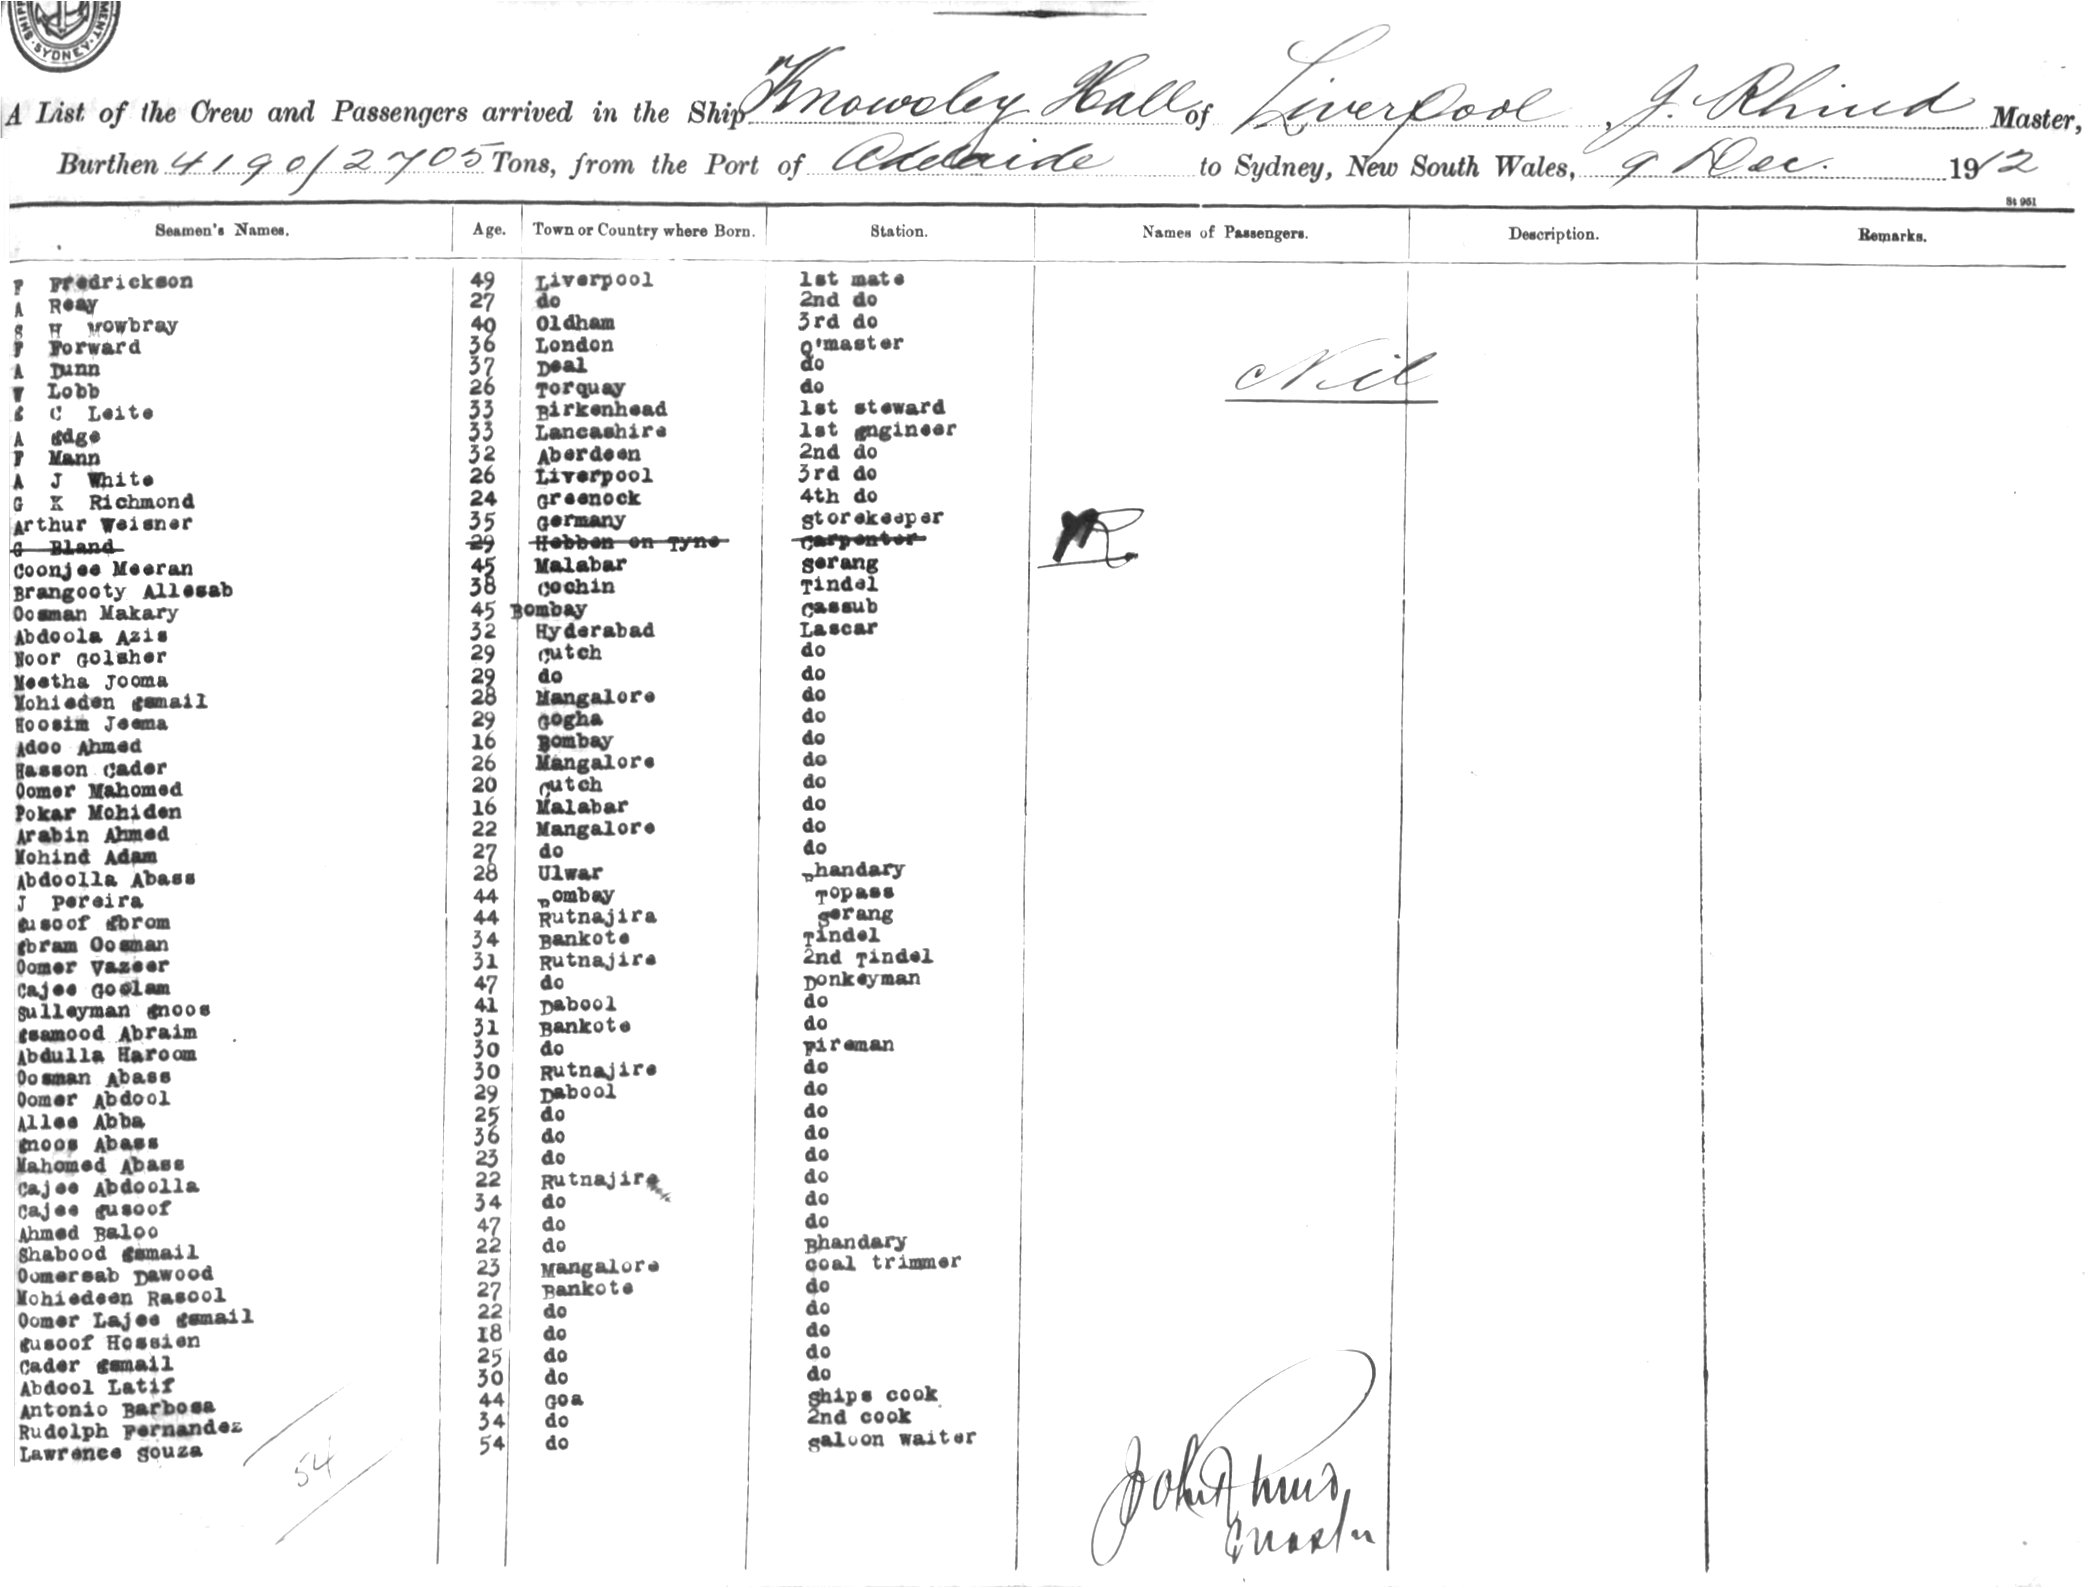 MENT. SYDNEY. SHIP
A List of the Crew and Passengers arrived in the Ship "Knowsley Hall of Liverpool, J. Rhind Master,
Burthen 4190/2705 Tons, from the Port of Adelaide to Sydney, New South Wales, 9 Dec. 1912
St 961
Seamen's Names. Age. Town or Country where Born. Station. Names of Passengers. Description. Remarks.
F Fredrickson 49 Liverpool 1st mate
A Reay 27 do 2nd do
S H Mowbray 40 Oldham 3rd do
F Forward 36 London Q'master
A Dunn 37 Deal do
W Lobb 26 Torquay do
Nil
E C Leite 33 Birkenhead 1st steward
A Edge 33 Lancashire 1st Engineer
F Mann 32 Aberdeen 2nd do
A J White 26 Liverpool 3rd do
G K Richmond 24 Greenock 4th do
Arthur Weisner 35 Germany Storekeeper
G Bland 29 Hebben on Tyne Carpenter
Coonjee Meeran 45 Malabar Serang
Brangooty Allesab 38 Cochin Tindel
Oosman Makary 45 Bombay Cassub
Abdoola Azis 32 Hyderabad Lascar
Noor Golsher 29 Cutch do
Meetha Jooma 29 do do
Mohieden Esmail 28 Mangalore do
Hoosim Jeema 29 Gogha do
Adoo Ahmed 16 Bombay do
Hasson Cader 26 Mangalore do
Oomer Mahomed 20 Cutch do
Pokar Mohiden 16 Malabar do
Arabin Ahmed 22 Mangalore do
Mohind Adam 27 do do
Abdoolla Abass 28 Ulwar Bhandary
J Pereira 44 Bombay Topass
Eusoof Ebrom 44 Rutnajira Serang
Ebram Oosman 34 Bankote Tindel
Oomer Vazeer 31 Rutnajire 2nd Tindel
Cajee Goolam 47 do Donkeyman
Sulleyman Enoos 41 Dabool do
Esamood Abraim 31 Bankote do
Abdulla Haroom 30 do Fireman
Oosman Abass 30 Rutnajire do
Oomer Abdool 29 Dabool do
Allee Abba 25 do do
Enoos Abass 36 do do
Mahomed Abass 23 do do
Cajee Abdoolla 22 Rutnajire do
Cajee Eusoof 34 do do
Ahmed Baloo 47 do do
Shabood Esmail 22 do Bhandary
Oomersab Dawood 23 Mangalore coal trimmer
Mohiedeen Rasool 27 Bankote do
Oomer Lajee Esmail 22 do do
Eusoof Hossien 18 do do
Cader Esmail 25 do do
Abdool Latif 30 do do
Antonio Barbosa 44 Goa Ships cook
Rudolph Fernandez 34 do 2nd cook
Lawrence Souza 54 do Saloon waiter
54
John Rhind
Master